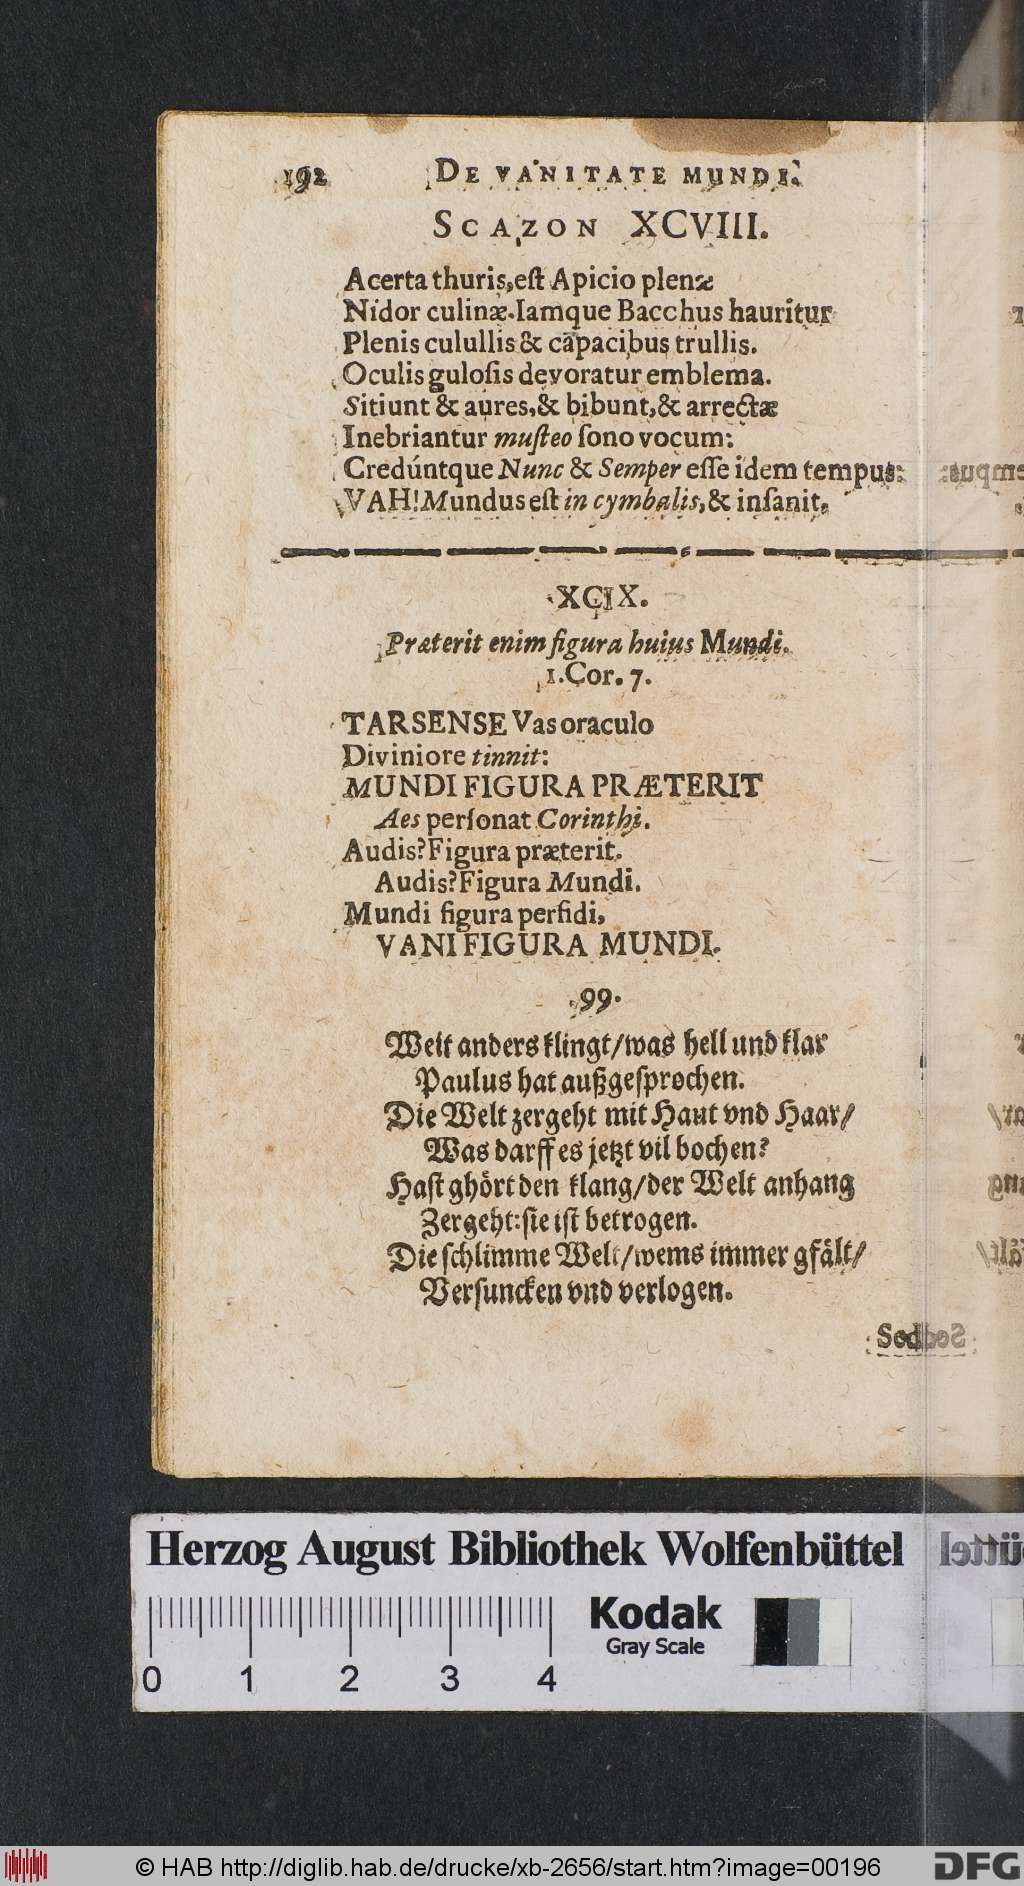 192 DE VANITATE MUNDI.
SCAZON XCVIII.
Acerta thuris, eſt Apicio plenæ
Nidor culinæ. Iamque Bacchus hauritur
Plenis culullis & capacibus trullis.
Oculis guloſis devoratur emblema.
Sitiunt & aures, & bibunt, & arrectæ
Inebriantur muſteo ſono vocum:
Credúntque Nunc & Semper eſſe idem tempus:
VAH! Mundus eſt in cymbalis, & inſanit.
XCIX.
Præterit enim figura huius Mundi.
1. Cor. 7.
TARSENSE Vas oraculo
Diviniore tinnit:
MUNDI FIGURA PRÆTERIT
Aes perſonat Corinthi.
Audis? Figura præterit.
Audis? Figura Mundi.
Mundi figura perfidi,
VANI FIGURA MUNDI.
99.
Weit anders klingt/was hell und klar
Paulus hat außgeſprochen.
Die Welt zergeht mit Haut vnd Haar/
Was darff es jetzt vil bochen?
Haſt ghört den klang/der Welt anhang
Zergeht: ſie iſt betrogen.
Die ſchlimme Welt/wems immer gfält/
Verſuncken vnd verlogen.
Sed
Herzog August Bibliothek Wolfenbüttel
Kodak
Gray Scale
0 1 2 3 4
© HAB http://diglib.hab.de/drucke/xb-2656/start.htm?image=00196
DFG